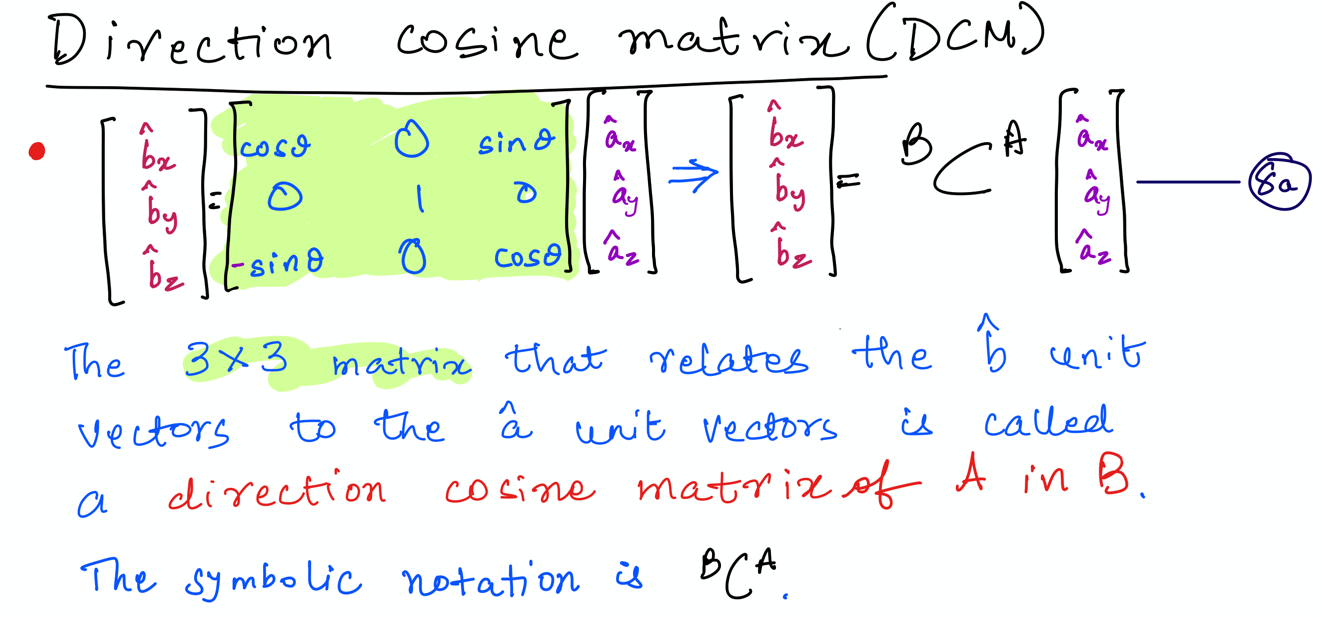 Direction cosine matrix (DCM)
[b̂x b̂y b̂z] = [cosθ 0 sinθ; 0 1 0; -sinθ 0 cosθ] [âx ây âz] ⇒ [b̂x b̂y b̂z] = ᴮCᴬ [âx ây âz] — 8a
The 3×3 matrix that relates the b̂ unit
vectors to the â unit vectors is called
a direction cosine matrix of A in B.
The symbolic notation is ᴮCᴬ.